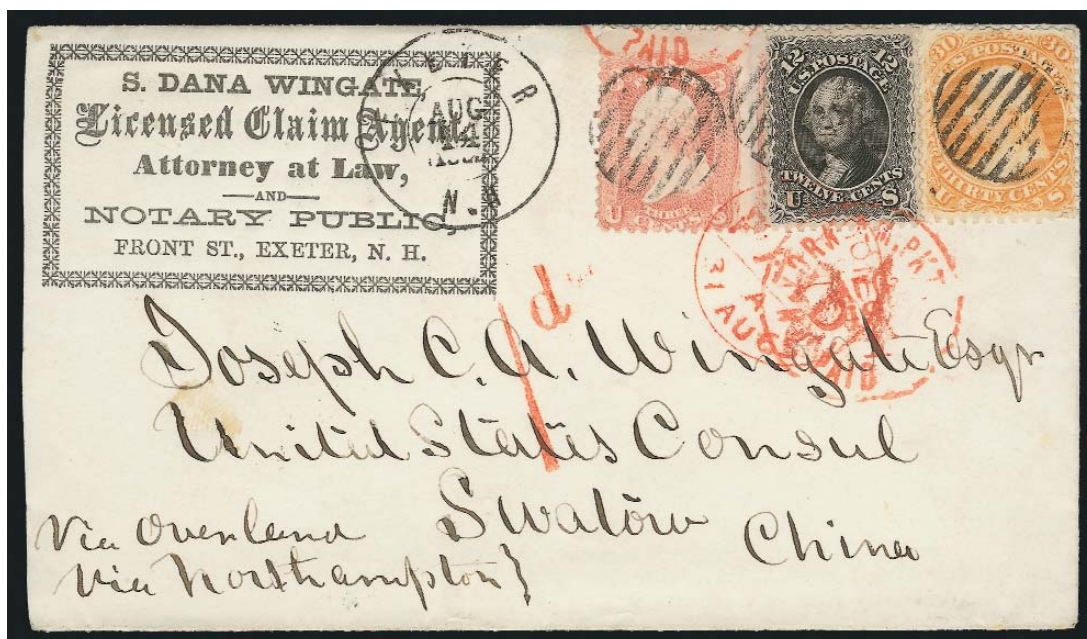 S. DANA WINGATE,
Licensed Claim Agent,
Attorney at Law,
AND
NOTARY PUBLIC,
FRONT ST., EXETER, N. H.
EXETER
AUG
14
N.H
PAID
3
U THREE
12 12
U.S. POSTAGE
TWELVE CENTS
U S
30 30
U.S. POSTAGE
THIRTY CENTS
U S
YORK AM. PKT
31 AUG
PAID
1d
Joseph C. A. Wingate Esqr
United States Consul
Swatow
China
Via Overland
Via Northampton}